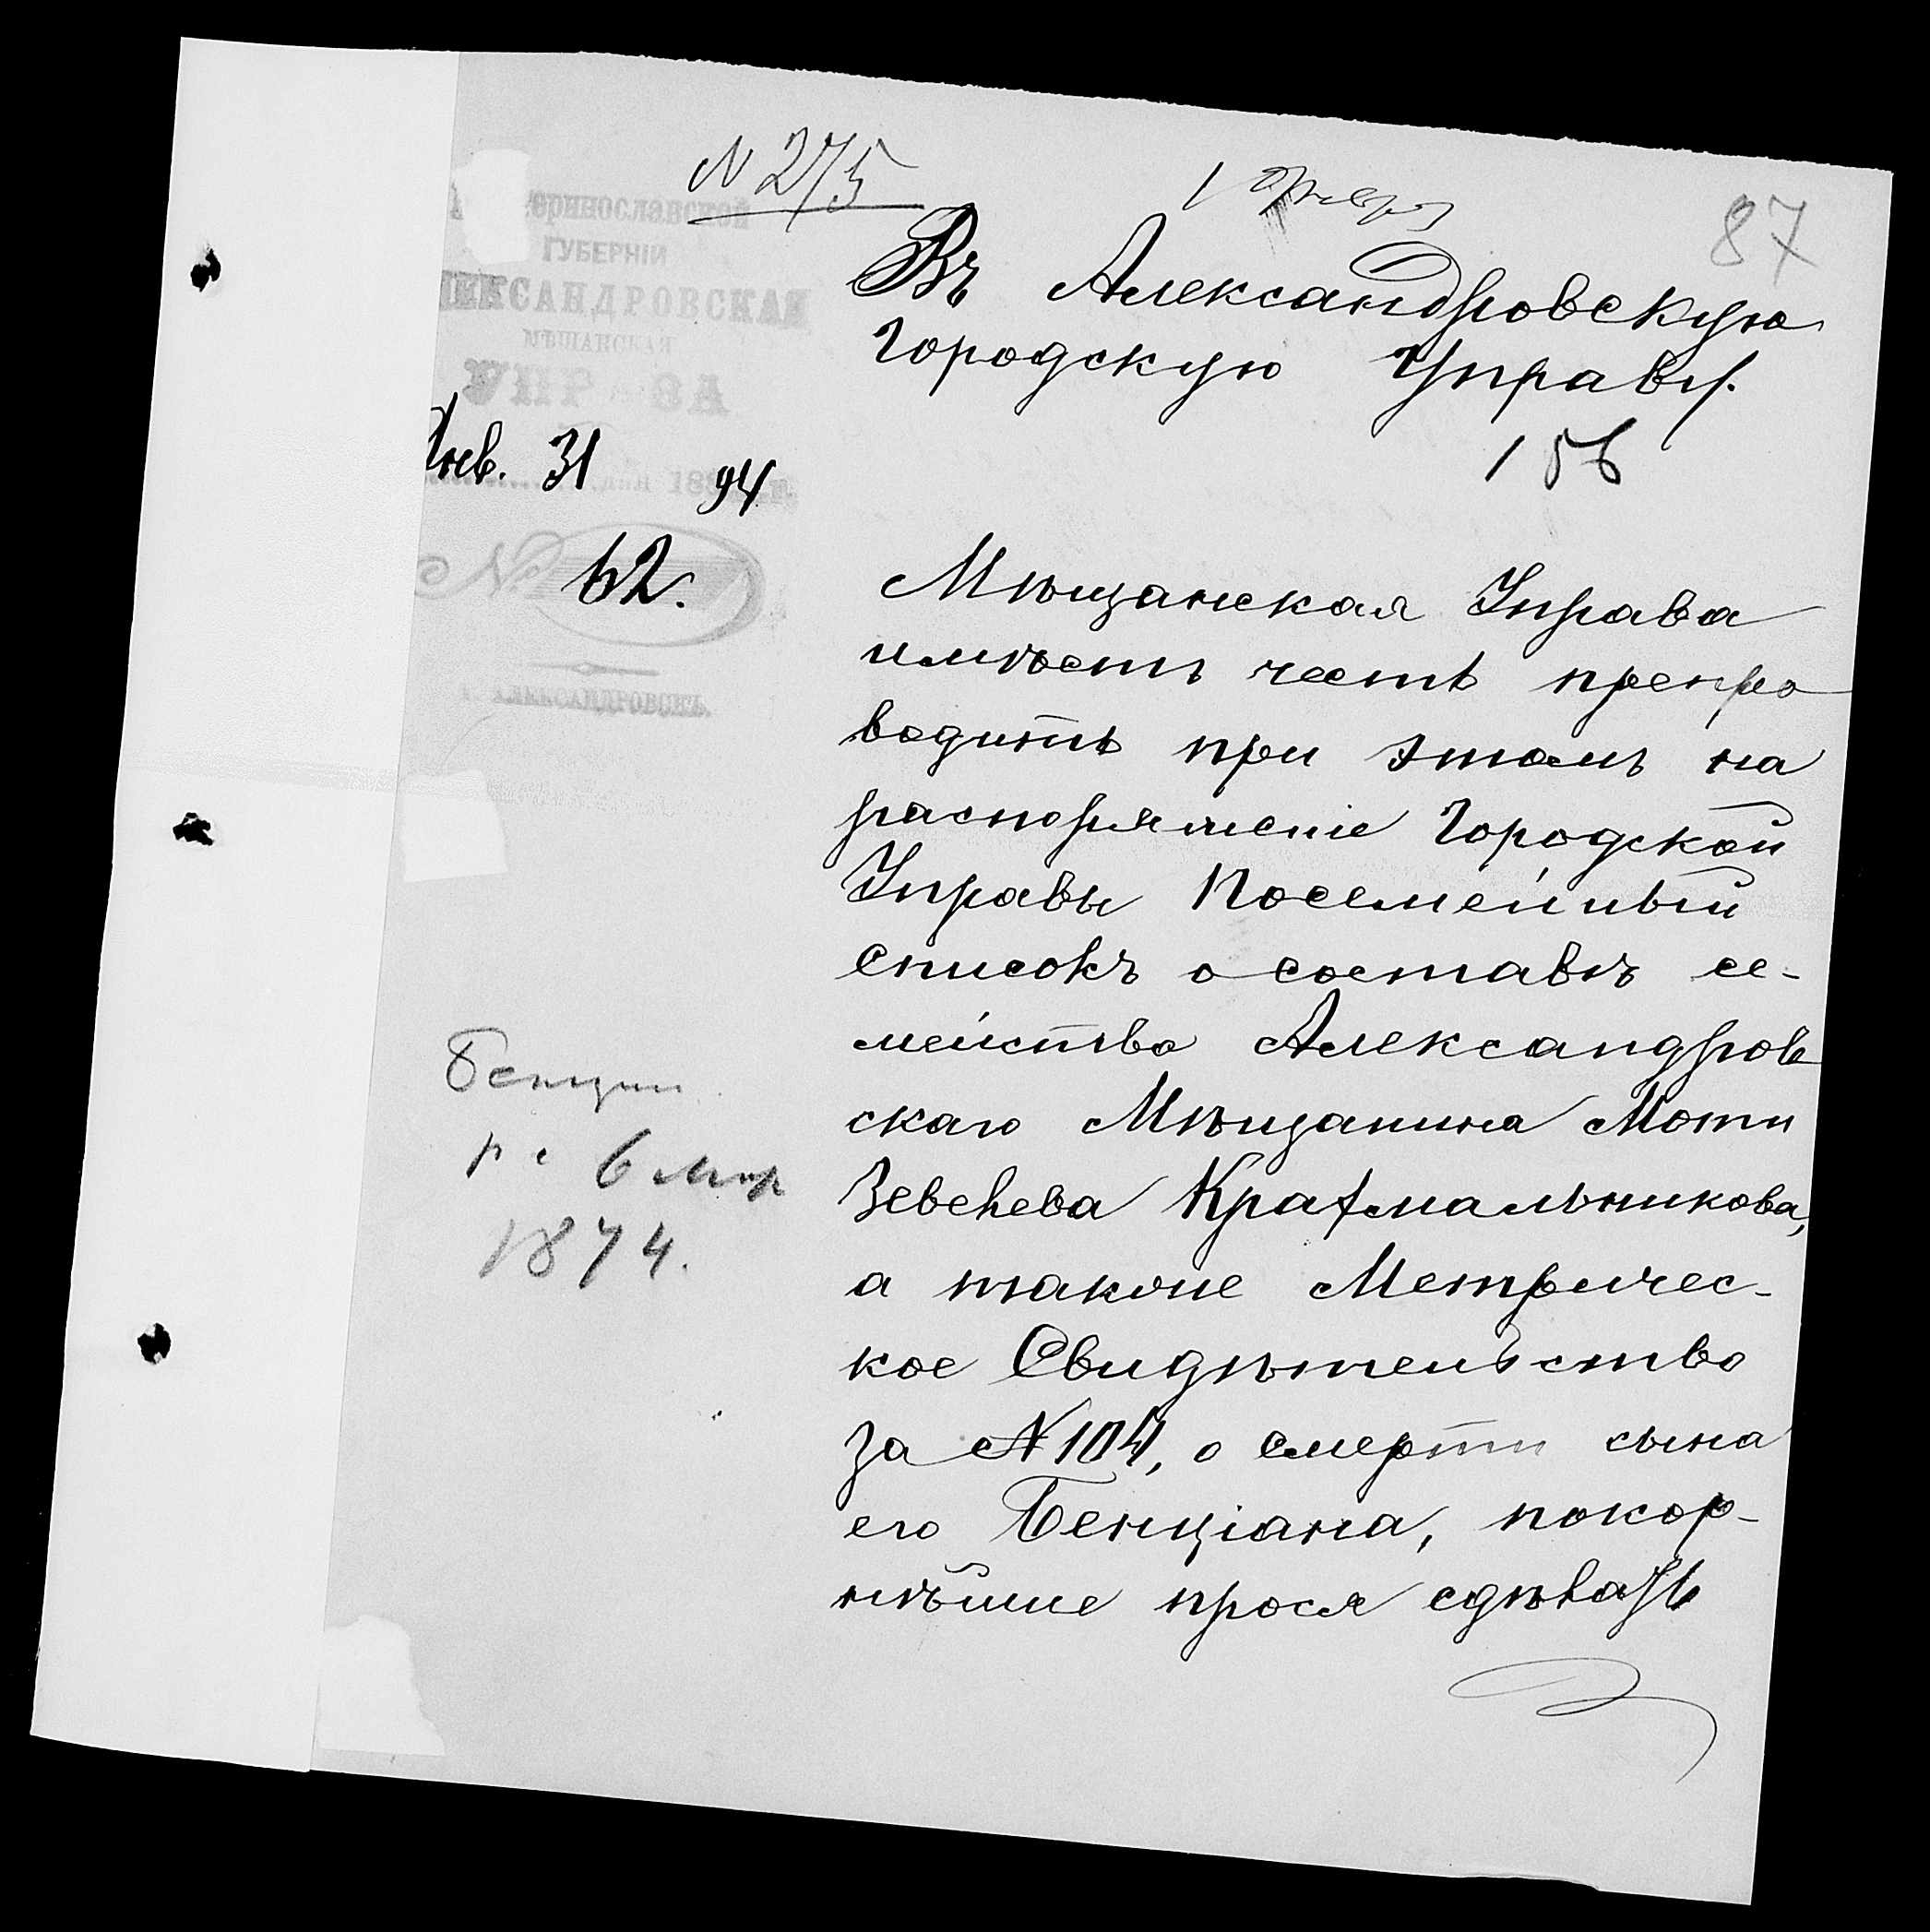 N 275
1 Февр
87
Екатеринославской
ГУБЕРНІИ
АЛЕКСАНДРОВСКАЯ
МѢЩАНСКАЯ
УПРАВА
Янв. 31 дня 1894 г.
№ 62.
Г. АЛЕКСАНДРОВСКЪ.
Въ Александровскую
Городскую Управу.
156
Мѣщанская Управа
имѣетъ честь препро
водить при этомъ на
распоряженіе Городской
Управы Посемейный
списокъ о составѣ се-
мейства Александров
скаго Мѣщанина Моти
Зевелева Крахмальникова,
а также Метричес-
кое Свидѣтельство
за N 104, о смерти сына
его Бенціана, покор-
нѣйше прося сдѣлать
Бенціин
р. 6 мар
1874.